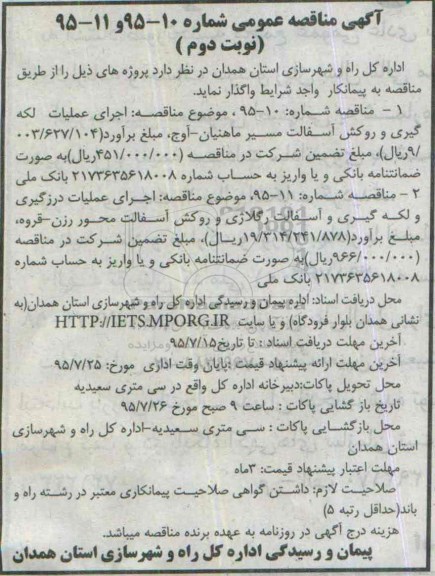 آگهی مناقصه عمومی شماره ۱۰-۹۵و ۱۱-۹۵
(نوبت دوم)
اداره کل راه و شهرسازی استان همدان در نظر دارد پروژه های ذیل را از طریق
مناقصه به پیمانکار واجد شرایط واگذار نماید.
۱ - مناقصه شماره: ۱۰-۹۵ ، موضوع مناقصه: اجرای عملیات لکه
گیری و روکش آسفالت مسیر ماهنیان-آوج، مبلغ برآورد(۰۰۳/۶۲۷/۱۰۴
/۹ریال)، مبلغ تضمین شرکت در مناقصه (۴۵۱/۰۰۰/۰۰۰ریال)به صورت
ضمانتنامه بانکی و یا واریز به حساب شماره ۲۱۷۳۶۳۵۶۱۸۰۰۸ بانک ملی
۲ - مناقصه شماره: ۱۱-۹۵، موضوع مناقصه: اجرای عملیات درزگیری
و لکه گیری و آسفالت رگلاژی و روکش آسفالت محور رزن-قروه،
مبلغ برآورد(۱۹/۳۱۴/۲۴۱/۸۷۸ریال)، مبلغ تضمین شرکت در مناقصه
(۹۶۶/۰۰۰/۰۰۰ریال)به صورت ضمانتنامه بانکی و یا واریز به حساب شماره
۲۱۷۳۶۳۵۶۱۸۰۰۸ بانک ملی
محل دریافت اسناد: اداره پیمان و رسیدگی اداره کل راه و شهرسازی استان همدان(به
نشانی همدان بلوار فرودگاه) و یا سایت HTTP://IETS.MPORG.IR
آخرین مهلت دریافت اسناد : تا تاریخ۹۵/۷/۱۵
آخرین مهلت ارائه پیشنهاد قیمت :پایان وقت اداری مورخ: ۹۵/۷/۲۵
محل تحویل پاکات:دبیرخانه اداره کل واقع در سی متری سعیدیه
تاریخ باز گشایی پاکات : ساعت ۹ صبح مورخ ۹۵/۷/۲۶
محل بازگشایی پاکات : سی متری سعیدیه-اداره کل راه و شهرسازی
استان همدان
مهلت اعتبار پیشنهاد قیمت: ۳ماه
صلاحیت لازم: داشتن گواهی صلاحیت پیمانکاری معتبر در رشته راه و
باند(حداقل رتبه ۵)
هزینه درج آگهی در روزنامه به عهده برنده مناقصه میباشد.
پیمان و رسیدگی اداره کل راه و شهرسازی استان همدان